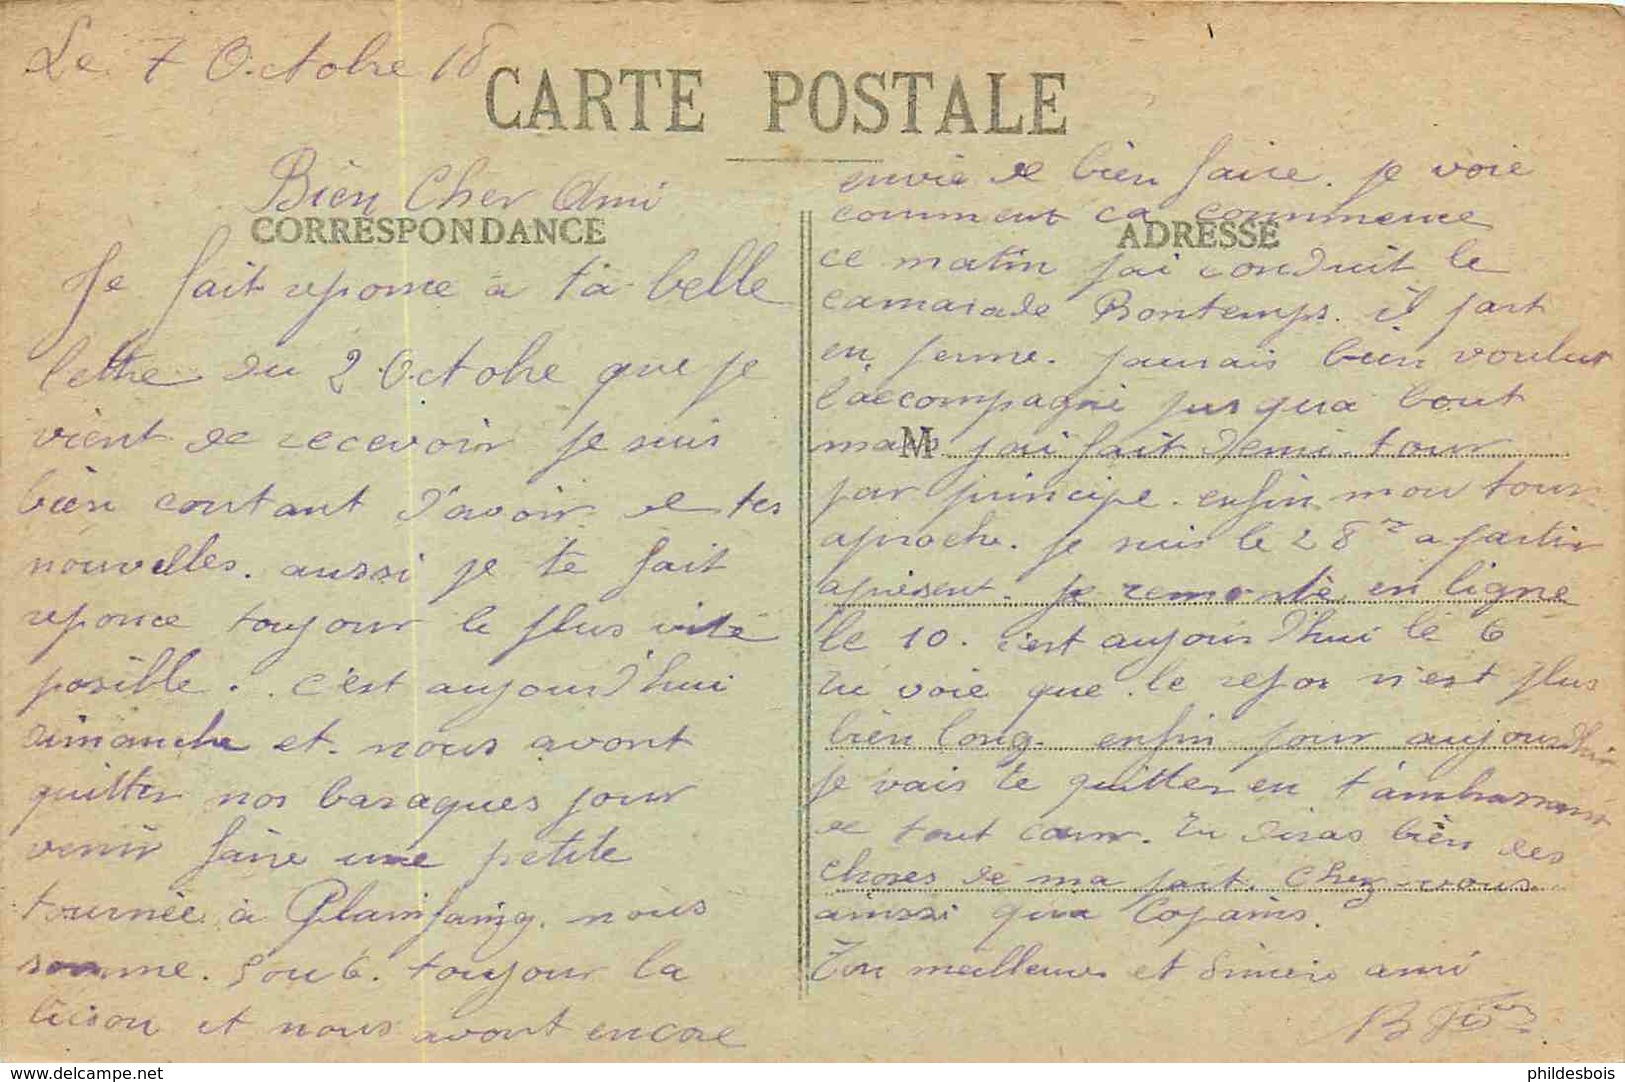 Le 7 Octobre 18
CARTE POSTALE
Bien Cher Ami
CORRESPONDANCE
Je fait reponce a ta belle
lettre du 2 Octobre que je
vient de recevoir je suis
bien contant d'avoir de tes
nouvelles. aussi je te fait
reponce toujour le plus vite
posible. c'est aujourd'hui
dimanche et nous avont
quitter nos baraques pour
venir faire une petite
tournée à Plainfaing. nous
somme toujour la
liéson et nous avont encore
envie de bien faire. je voie
comment ca commence
ADRESSE
ce matin j'ai conduit le
camarade Bontemps. il part
en perme. jaurais bien voulut
l'accompagné jus qua bout
M
mais j'ai fait demi tour
par principe. enfin mon tour
aproche. je suis le 28 a partir
apresent. je remonte en ligne
le 10. c'est aujourd'hui le 6
tu voie que le repos n'est plus
bien long. enfin pour aujourd'hui
je vais te quitter en t'ambrassant
de tout cœur. Tu diras bien des
choses de ma part. Chez vous
ainssi qua Copains.
Ton meilleur et Sincer ami
delcampe.net
phildesbois